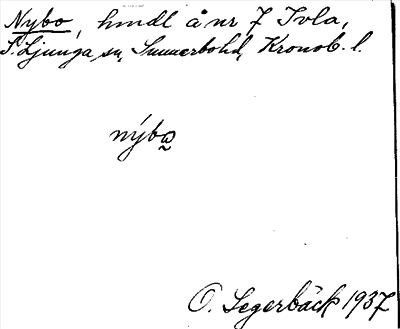 Nybo, hmdl å nr 7 Tvla,
S. Ljunga sn, Sunnerbohd, Kronob. l.
nýbo̰
O. Segerbäck 1937